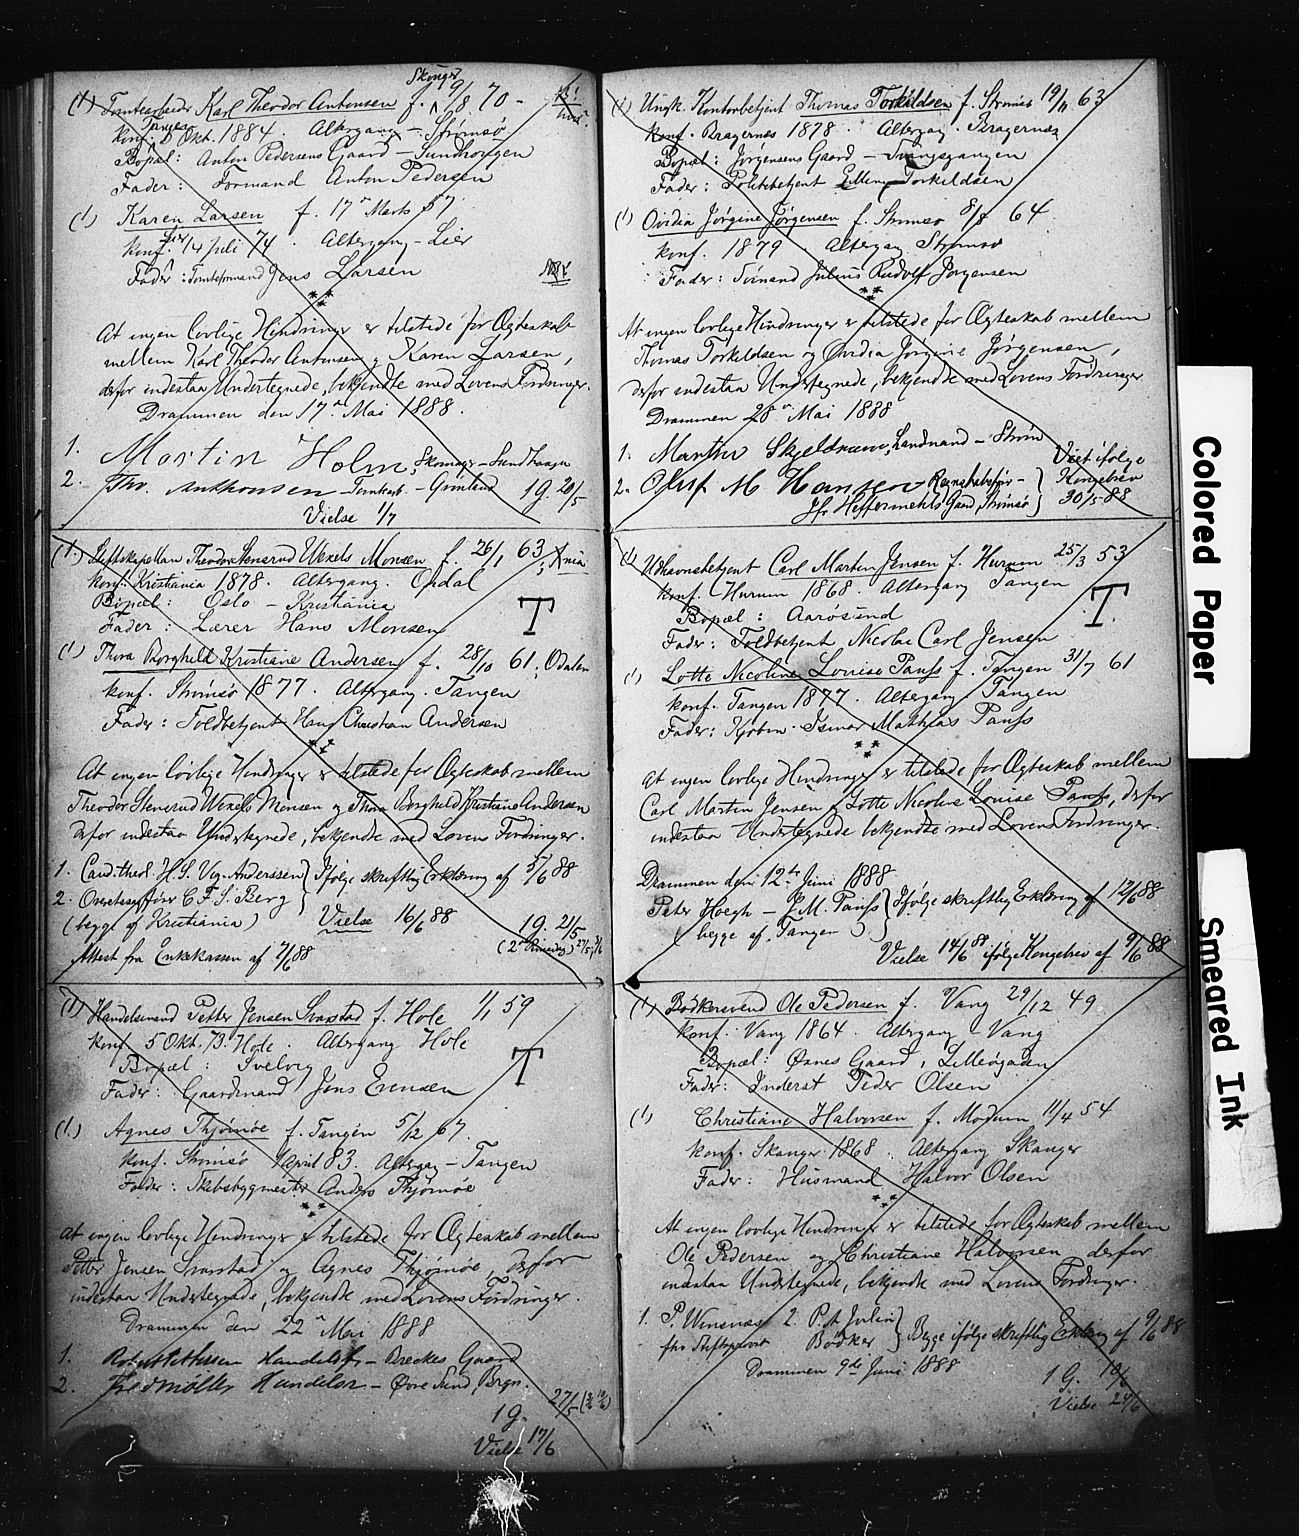 Skouger
(1) Tomtearbeider Karl Theodor Antonsen f. 19/8 70 -
konf. Tangen 5 Okt. 1884. Altergang - Strømsø
Bopæl: Anton Pedersens Gaard - Sundhougen
Fader: Formand Anton Pedersen
(1) Karen Larsen f. 17de Marts 57
konf. Lier 14 Juli 74. Altergang - Lier
Fader: Tomteformand Jens Larsen
At ingen lovlige Hindringer er tilstede for Ægteskab
mellem Karl Theodor Antonsen og Karen Larsen,
derfor indestaa Undertegnede, bekjendte med Lovens Fordringer.
Drammen den 17de Mai 1888.
1. Martin Holm, Skomager - Sundhaugen
2. Chr. Anthonsen Tomtearb. - Grønland 1 g. 20/5
Vielse 1/7
(1.) Stiftskapellan Theodor Stenerud Wexels Monsen f. 26/1 63; Xnia
konf. Kristiania 1878. Altergang. Opdal
Bopæl: Oslo - Kristiania
T
Fader: Lærer Hans Monsen
(1) Thora Borghild Kristiane Andersen f. 28/10 61; Odalen
konf. Strømsø 1877. Altergang. Tangen
Fader: Toldbetjent Hans Christian Andersen
At ingen lovlige Hindringer er tilstede for Ægteskab mellem
Theodor Stenerud Wexels Monsen og Thora Borghild Kristiane Andersen
derfor indestaa Undertegnede, bekjendte med Lovens Fordringer.
1. Cand. theol. H. S. Anderssen } Ifølge skriftlig Erklæring af 5/6 88
2. Overretssagfører C. F. S. Berg
(begge af Kristiania) Vielse 16/6 88 1 g. 21/5
Attest fra Enkekassen af 7/6 88
(1) Handelsmand Petter Jensen Svarstad f. Hole 1/1 59
konf. 5 Okt. 73. Hole. Altergang Hole
Bopæl: Svelvig
T
Fader: Gaardmand Jens Evensen
(1.) Agnes Thjømøe f. Tangen 5/12 67.
konf. Strømsø April 83. Altergang - Tangen
Fader: Skibsbygmester Anders Thjømøe
At ingen lovlige Hindringer er tilstede for Ægteskab mellem
Petter Jensen Svarstad og Agnes Thjømøe, derfor
indestaa Undertegnede, bekjendte med Lovens Fordringer.
Drammen den 22de Mai 1888
1. Handelsf. - Breckes Gaard
2. Fredr Møller Handelsr. - Øvre Sund, Brgn.
27/5
1 g.
Vielse 17/6
(1) Ungk. Kontorbetjent Thomas Torkildsen f. Strømsø 19/11 63
konf. Bragernæs 1878. Altergang. Bragernæs
Bopæl: Jørgensens Gaard - Tvangsgangen
Fader: Politibetjent Elling Torkildsen
(1) Ovidia Jørgine Jørgensen f. Strømsø 8/8 64.
konf. 1879. Altergang Strømsø
Fader: Svinand Julius Rudolf Jørgensen
At ingen lovlige Hindringer er tilstede for Ægteskab mellem
Thomas Torkildsen og Ovidia Jørgine Jørgensen,
derfor indestaa Undertegnede, bekjendte med Lovens Fordringer
Drammen 28de Mai 1888
1. Marthin Skjeldrum, Landmand - Strøm
Viet ifølge
2. Oluf M Hansen Regnskabsfør -
Kongebrev
Hr. Heftermehls Gaard, Strømsø } 30/5-88
(1) Udhavnsbetjent Carl Martin Jensen f. Hurum 25/3 53
konf. Hurum 1868. Altergang Tangen
Bopæl: Aarøsund
T
Fader: Toldbetjent Nicolai Carl Jensen
(1) Lotte Nicoline Louise Panss f. Tangen 31/7 61
konf. Tangen 1877. Altergang Tangen
Fader: Kjøbm. Ismar Mathias Panss
At ingen lovlige Hindringer er tilstede for Ægteskab mellem
Carl Martin Jensen og Lotte Nicoline Louise Panss, derfor
indestaa Undertegnede bekjendte med Lovens Fordringer.
Drammen den 12te Juni 1888
Peter Hoegh - M. Panss } Ifølge skriftlig Erklæring af 12/6 88
(begge af Tangen)
Vielse 14/6 88 ifølge Kongebrev af 9/6 88
(1) Bødkersvend Ole Pedersen f. Vang 29/12 49
konf. Vang 1864. Altergang Vang
Bopæl: Øsnes Gaard, Lilleøgaden
Fader: Inderst Peder Olsen
(1) Christiane Halvorsen f. Modum 11/4 54
konf. Skauger 1868. Altergang Skauger
Fader: Husmand Halvor Olsen
At ingen lovlige Hindringer er tilstede for Ægteskab mellem
Ole Pedersen og Christiane Halvorsen derfor
indestaa Undertegnede, bekjendte med Lovens Fordringer.
1. P. Winsnæs 2. P. A. Julin } Begge ifølge skriftlig Erklæring af 9/6 88
fhv. Stiftsprovst Bødker
Drammen 9de Juni 1888
1 G. 10/6
Vielse 24/6
Colored Paper
Smeared Ink